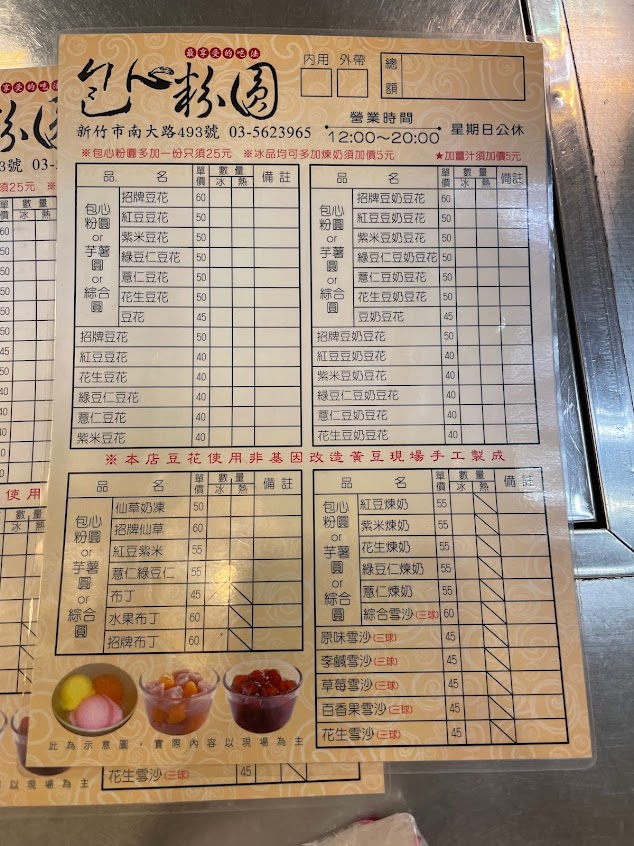 最享受的吃法
包心粉圓
內用 外帶
總額
新竹市南大路493號 03-5623965
營業時間
12:00～20:00
星期日公休
※包心粉圓多加一份只須25元 ※冰品均可多加煉奶須加價5元 ★加薑汁須加價5元
品名 單價 數量 冰 熱 備註
包心粉圓or芋薯圓or綜合圓
招牌豆花 60
紅豆豆花 50
紫米豆花 50
綠豆仁豆花 50
薏仁豆花 50
花生豆花 50
豆花 45
招牌豆花 50
紅豆豆花 40
花生豆花 40
綠豆仁豆花 40
薏仁豆花 40
紫米豆花 40
品名 單價 數量 冰 熱 備註
包心粉圓or芋薯圓or綜合圓
招牌豆奶豆花 60
紅豆豆奶豆花 50
紫米豆奶豆花 50
綠豆仁豆奶豆花 50
薏仁豆奶豆花 50
花生豆奶豆花 50
豆奶豆花 45
招牌豆奶豆花 50
紅豆豆奶豆花 40
紫米豆奶豆花 40
綠豆仁豆奶豆花 40
薏仁豆奶豆花 40
花生豆奶豆花 40
※本店豆花使用非基因改造黃豆現場手工製成
品名 單價 數量 冰 熱 備註
包心粉圓or芋薯圓or綜合圓
仙草奶凍 50
招牌仙草 60
紅豆紫米 55
薏仁綠豆仁 55
布丁 45
水果布丁 60
招牌布丁 60
此為示意圖，實際內容以現場為主
品名 單價 數量 冰 熱 備註
包心粉圓or芋薯圓or綜合圓
紅豆煉奶 55
紫米煉奶 55
花生煉奶 55
綠豆仁煉奶 55
薏仁煉奶 55
綜合雪沙(三球) 60
原味雪沙(三球) 45
李鹹雪沙(三球) 45
草莓雪沙(三球) 45
百香果雪沙(三球) 45
花生雪沙(三球) 45
花生雪沙(三球) 45
以現場為主